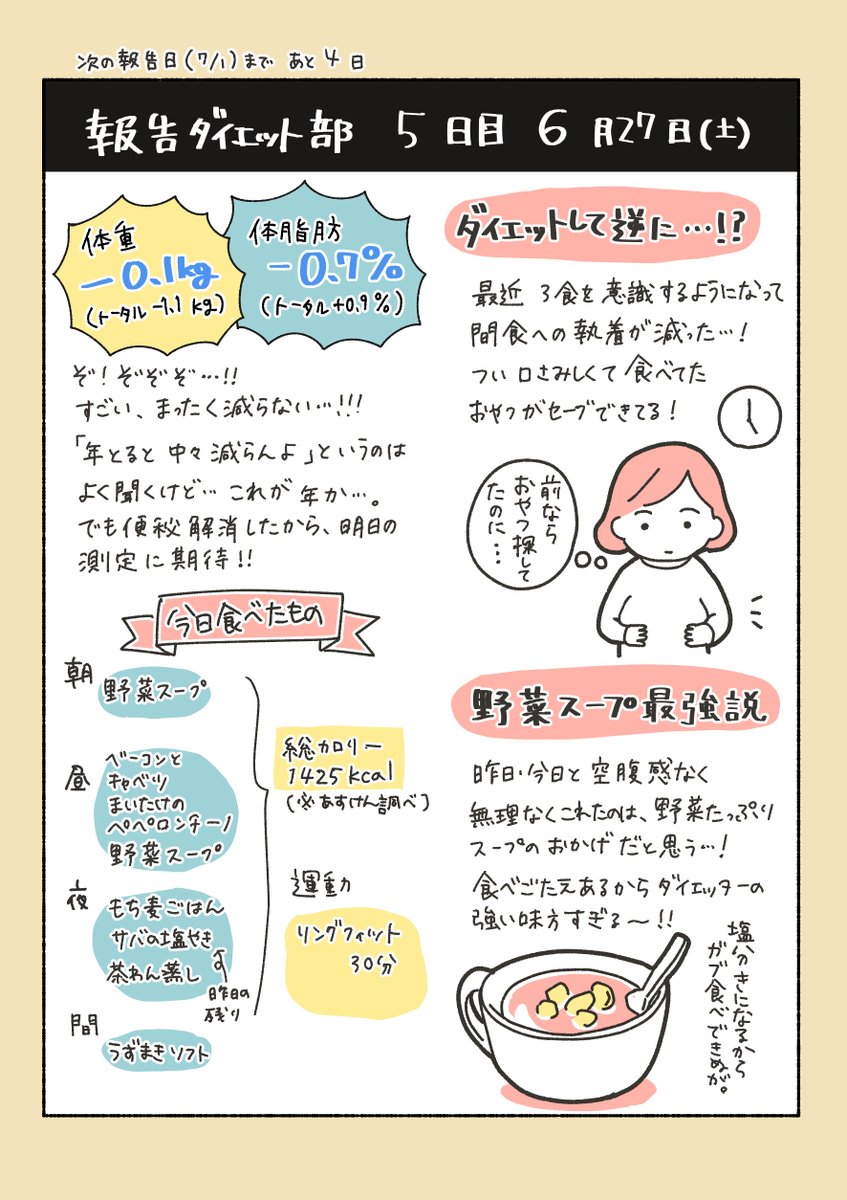 次の報告日(7/1)まで あと4日
報告ダイエット部 5日目 6月27日(土)
体重
-0.1kg
(トータル-1.1kg)
体脂肪
-0.7%
(トータル+0.9%)
ぞ!ぞぞぞ…!!
すごい、まったく減らない…!!!
「年とると中々減らんよ」というのは
よく聞くけど…これが年か…。
でも便秘解消したから、明日の
測定に期待!!
今日食べたもの
朝
野菜スープ
昼
ベーコンと
キャベツ
まいたけの
ペペロンチーノ
野菜スープ
夜
もち麦ごはん
サバの塩やき
茶わん蒸し
昨日の
残り
間
うずまきソフト
総カロリー
1425kcal
(※あすけん調べ)
運動
リングフィット
30分
ダイエットして逆に…!?
最近 3食を意識するようになって
間食への執着が減った…!
つい口さみしくて食べてた
おやつがセーブできてる!
前なら
おやつ探して
たのに…
野菜スープ最強説
昨日・今日と空腹感なく
無理なくこれたのは、野菜たっぷり
スープのおかげだと思う…!
食べごたえあるからダイエッターの
強い味方すぎる〜!!
塩分きになるから
ガブ食べできぬが。